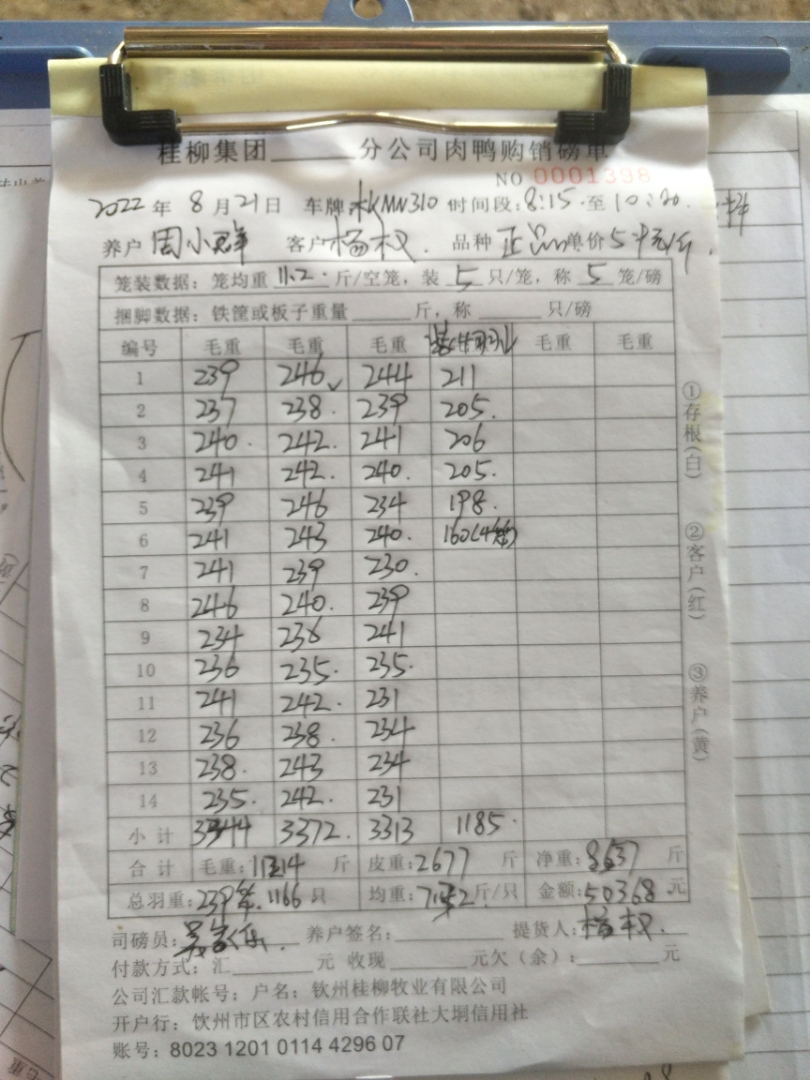 桂柳集团______分公司肉鸭购销磅单
NO 0001398
2022 年 8 月 21 日 车牌 MN310 时间段: 8:15 至 10:20
养户 周小群 客户 杨权 品种 正品 单价 元/斤
笼装数据: 笼均重 11.2 斤/空笼, 装 5 只/笼, 称 5 笼/磅
捆脚数据: 铁筐或板子重量______斤, 称______只/磅
编号 毛重 毛重 毛重 毛重 毛重
1 239 246 244 211
2 237 238 239 205
3 240 242 241 206
4 241 242 240 205
5 239 246 234 198
6 241 243 240 160(4笼)
7 241 239 230
8 246 240 239
9 234 236 241
10 236 235 235
11 241 242 231
12 236 238 234
13 238 243 234
14 235 242 231
小计 3344 3372 3313 1185
合计 毛重: 11214 斤 皮重: 2677 斤 净重: 8537 斤
总羽重: 239笼 1166 只 均重: 斤/只 金额: 50368 元
司磅员: 养户签名:______ 提货人: 杨权
付款方式: 汇______元 收现______元欠(余):______元
公司汇款帐号: 户名: 钦州桂柳牧业有限公司
开户行: 饮州市区农村信用合作联社大垌信用社
账号: 8023 1201 0114 4296 07
①存根(白)
②客户(红)
③养户(黄)